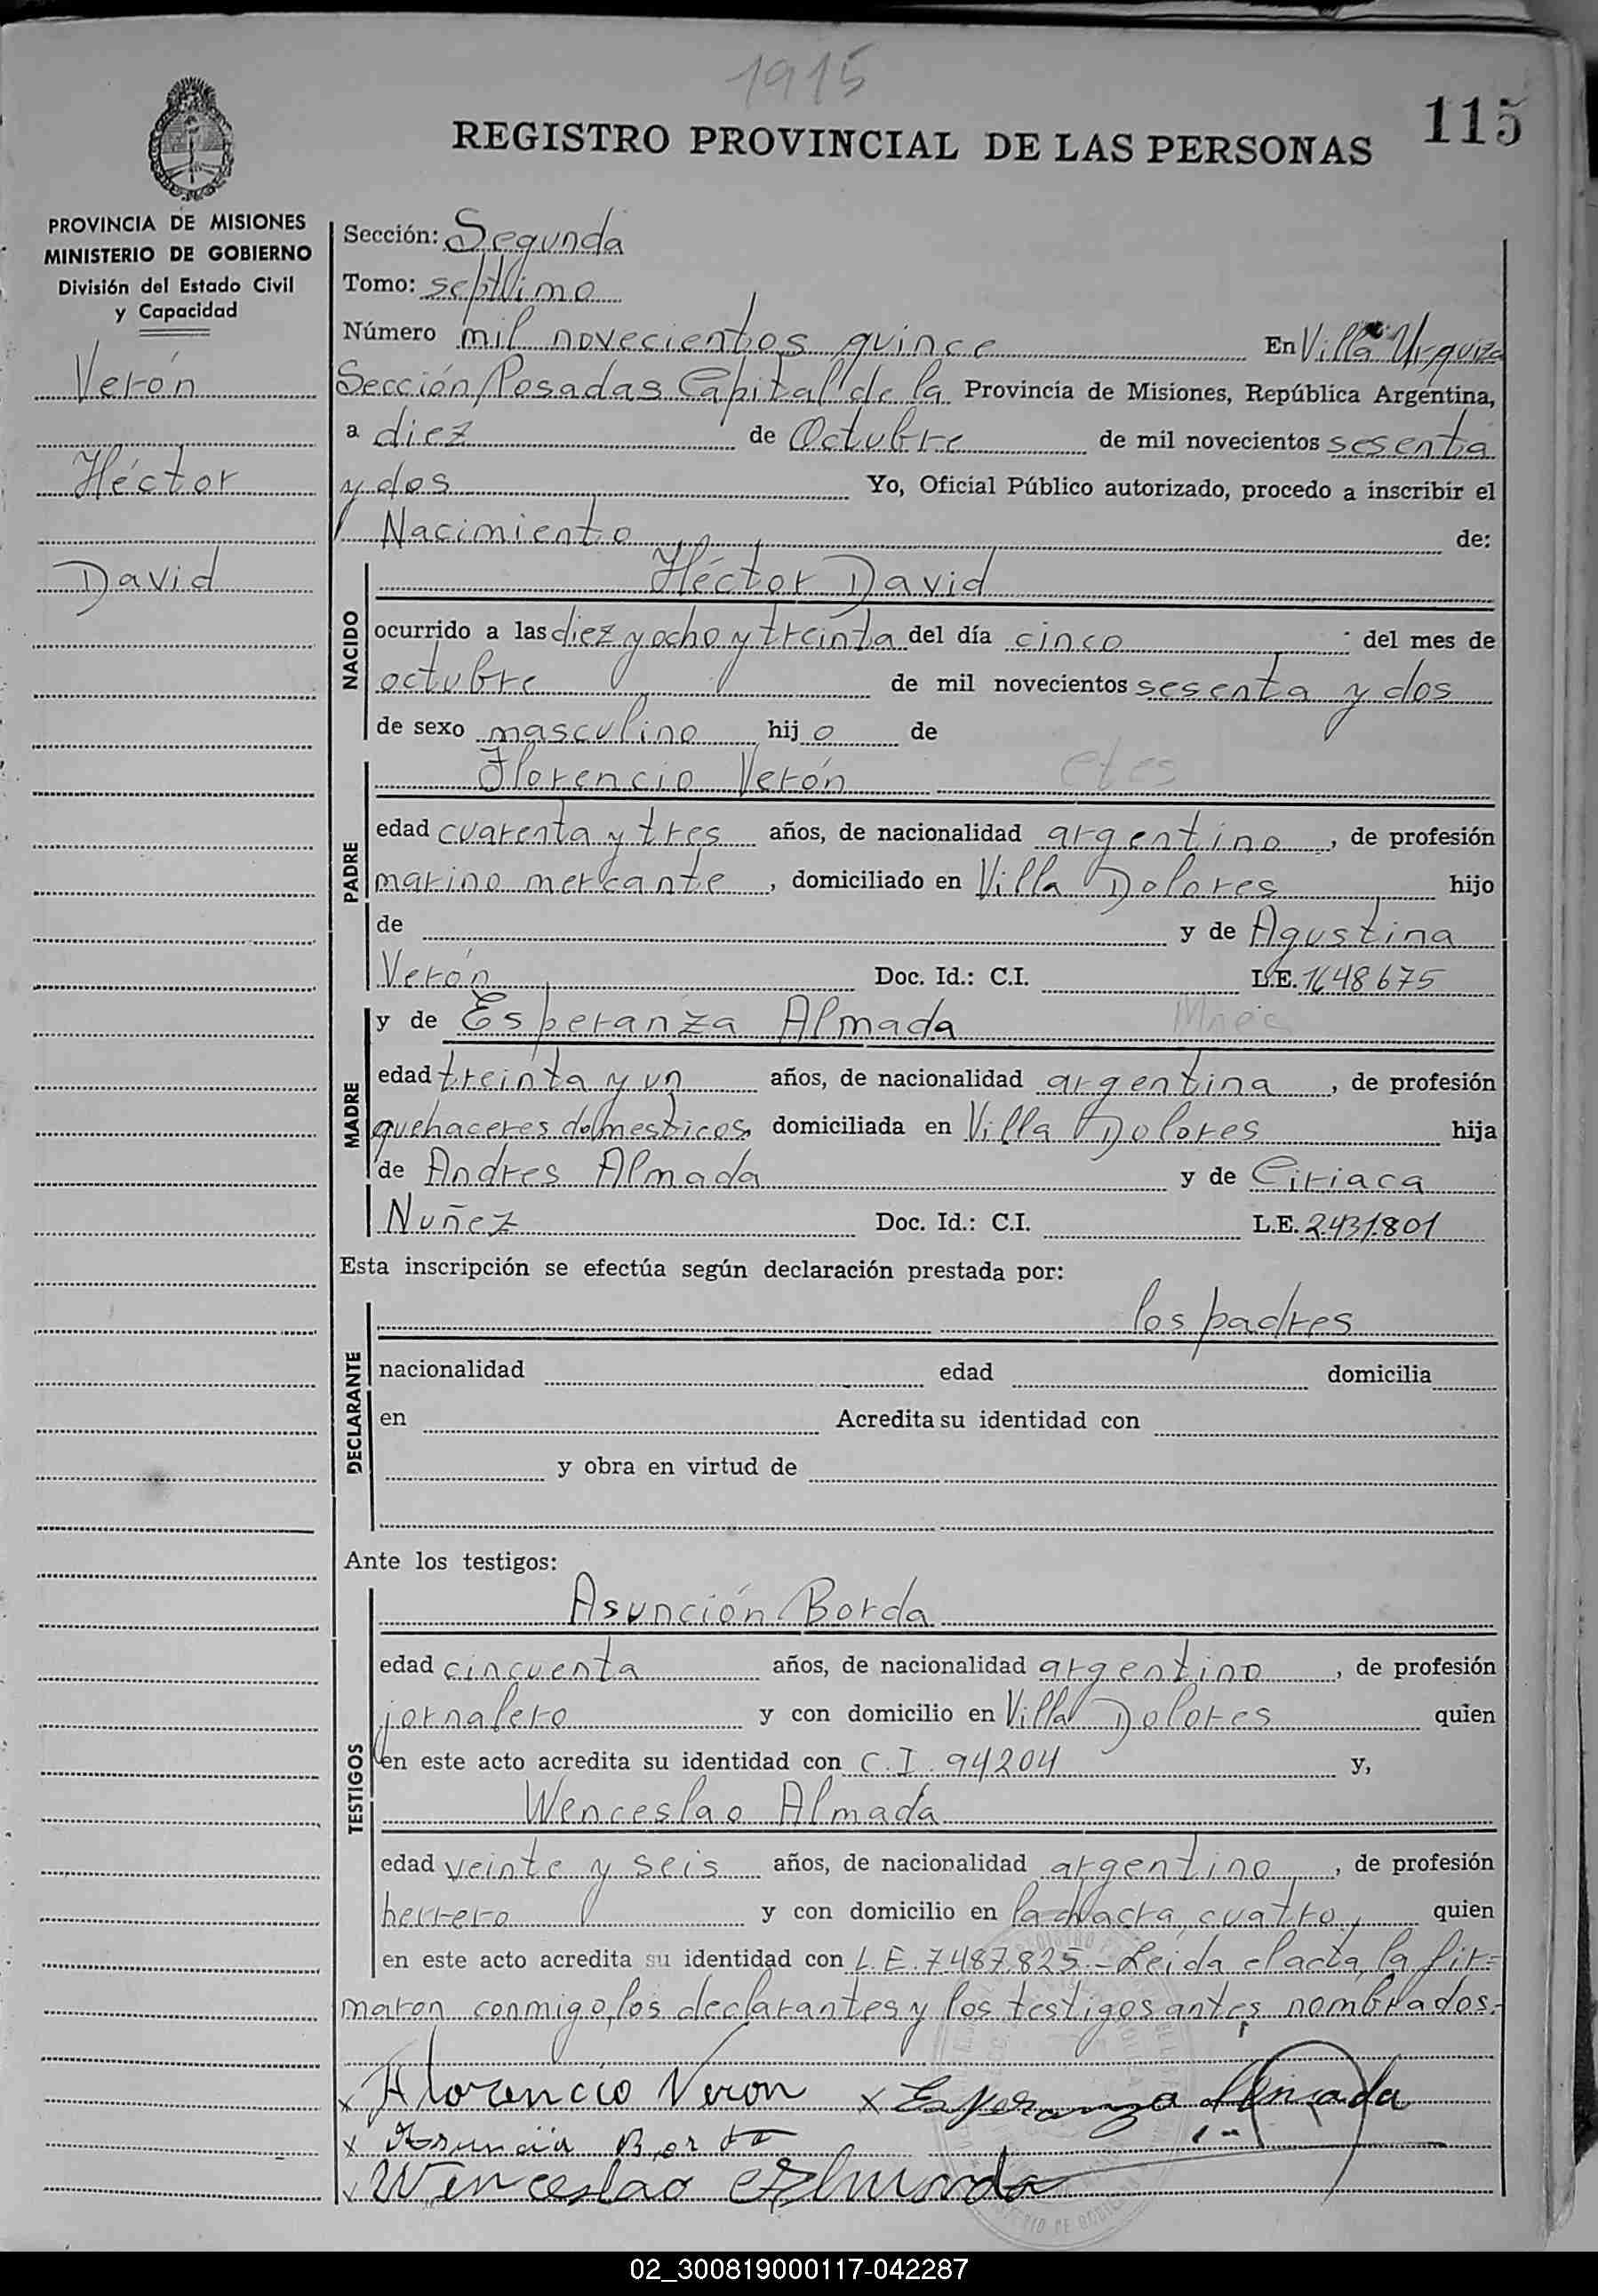 1915
115
REGISTRO PROVINCIAL DE LAS PERSONAS
PROVINCIA DE MISIONES
MINISTERIO DE GOBIERNO
División del Estado Civil
y Capacidad
Verón
Héctor
David
Sección: Segunda
Tomo: septimo
Número mil novecientos quince En Villa Urquiza
Sección Posadas Capital de la Provincia de Misiones, República Argentina,
a diez de Octubre de mil novecientos sesenta
y dos Yo, Oficial Público autorizado, procedo a inscribir el
Nacimiento de:
NACIDO
Héctor David
ocurrido a las diez y ocho y treinta del día cinco del mes de
octubre de mil novecientos sesenta y dos
de sexo masculino hijo de
PADRE
Florencio Verón
edad cuarenta y tres años, de nacionalidad argentino, de profesión
marino mercante, domiciliado en Villa Dolores hijo
de y de Agustina
Verón Doc. Id.: C.I. L.E. 1648675
MADRE
y de Esperanza Almada
edad treinta y un años, de nacionalidad argentina, de profesión
quehaceres domesticos, domiciliada en Villa Dolores hija
de Andres Almada y de Ciriaca
Nuñez Doc. Id.: C.I. L.E. 2.431.801
Esta inscripción se efectúa según declaración prestada por:
DECLARANTE
los padres
nacionalidad edad domicilia
en Acredita su identidad con
y obra en virtud de
Ante los testigos:
TESTIGOS
Asunción Borda
edad cincuenta años, de nacionalidad argentino, de profesión
jornalero y con domicilio en Villa Dolores quien
en este acto acredita su identidad con C.I. 94204 y,
Wenceslao Almada
edad veinte y seis años, de nacionalidad argentino, de profesión
herrero y con domicilio en la chacra cuatro, quien
en este acto acredita su identidad con L.E. 7487.825.- Leida el acta, la fir=
maron conmigo, los declarantes y los testigos antes nombrados.-
x Florencio Veron x Esperanza Almada
x Asunción Borda
x Wenceslao Almada
02_300819000117-042287